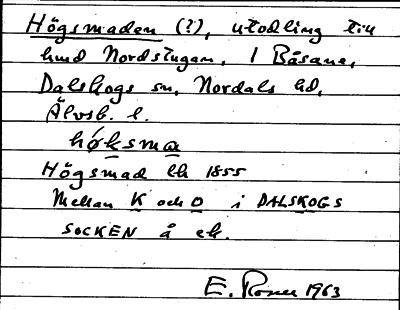 Högsmaden (?), utodling till
hmd Nordstugan, 1 Båsane,
Dalskogs sn, Nordals hd,
Älvsb. l.
hǿksma
Högsmad lk 1855
Mellan K och O i DALSKOGS
SOCKEN å ek.
E. Rosell 1963